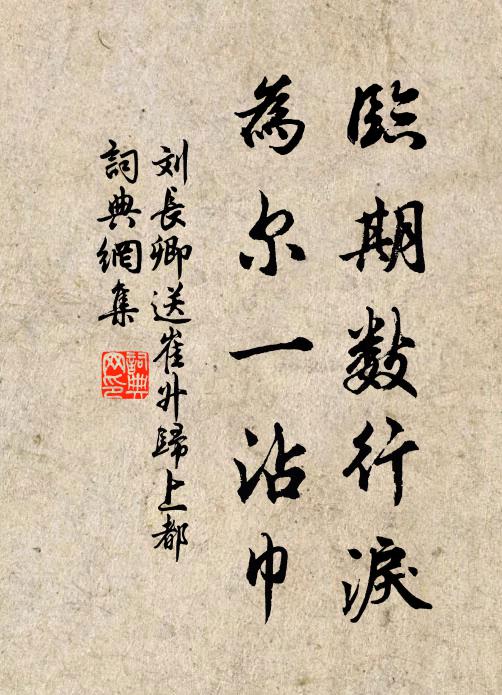 臨期數行淚
為尔一沾巾
刘長卿送崔升歸上都
詞典網集
詞典网印